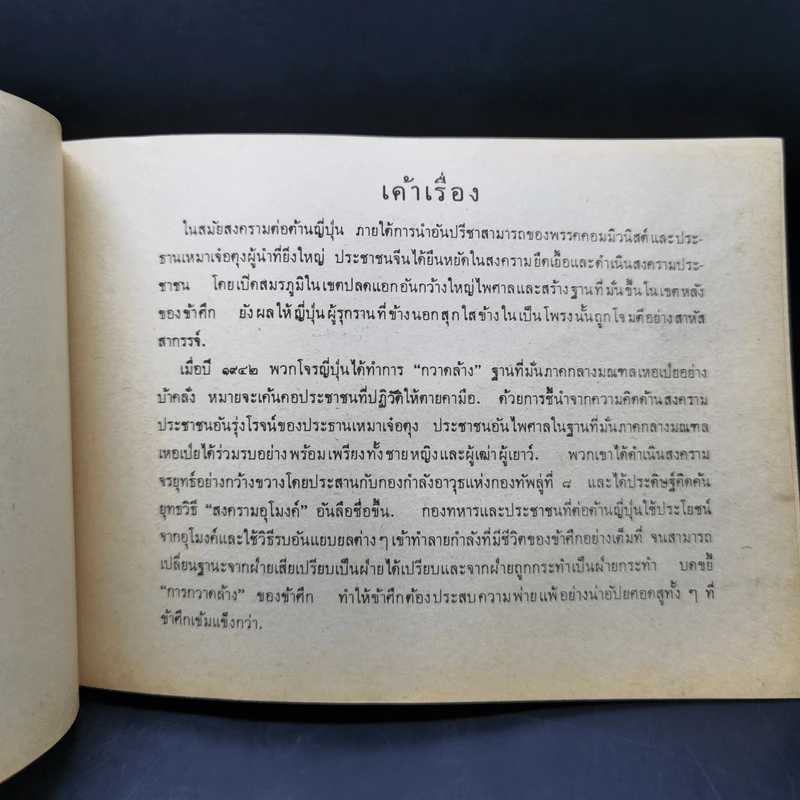 เค้าเรื่อง
ในสมัยสงครามต่อต้านญี่ปุ่น ภายใต้การนำอันปรีชาสามารถของพรรคคอมมิวนิสต์และประ-
ธานเหมาเจ๋อตุงผู้นำที่ยิ่งใหญ่ ประชาชนจีนได้ยืนหยัดในสงครามยืดเยื้อและดำเนินสงครามประ-
ชาชน โดยเปิดสมรภูมิในเขตปลดแอกอันกว้างใหญ่ไพศาลและสร้างฐานที่มั่นขึ้นในเขตหลัง
ของข้าศึก ยังผลให้ญี่ปุ่นผู้รุกรานที่ข้างนอกสุกใสข้างในเป็นโพรงนั้นถูกโจมตีอย่างสาหัส
สากรรจ์.
เมื่อปี ๑๙๔๒ พวกโจรญี่ปุ่นได้ทำการ “กวาดล้าง” ฐานที่มั่นภาคกลางมณฑลเหอเป่ยอย่าง
บ้าคลั่ง หมายจะเค้นคอประชาชนที่ปฏิวัติให้ตายคามือ. ด้วยการชี้นำจากความคิดด้านสงคราม
ประชาชนอันรุ่งโรจน์ของประธานเหมาเจ๋อตุง ประชาชนอันไพศาลในฐานที่มั่นภาคกลางมณฑล
เหอเป่ยได้ร่วมรบอย่างพร้อมเพรียงทั้งชายหญิงและผู้เฒ่าผู้เยาว์. พวกเขาได้ดำเนินสงคราม
จรยุทธ์อย่างกว้างขวางโดยประสานกับกองกำลังอาวุธแห่งกองทัพลู่ที่ ๘ และได้ประดิษฐ์คิดค้น
ยุทธวิธี “สงครามอุโมงค์” อันลือชื่อขึ้น. กองทหารและประชาชนที่ต่อต้านญี่ปุ่นใช้ประโยชน์
จากอุโมงค์และใช้วิธีรบอันแยบยลต่าง ๆ เข้าทำลายกำลังที่มีชีวิตของข้าศึกอย่างเต็มที่ จนสามารถ
เปลี่ยนฐานะจากฝ่ายเสียเปรียบเป็นฝ่ายได้เปรียบและจากฝ่ายถูกกระทำเป็นฝ่ายกระทำ บดขยี้
“การกวาดล้าง” ของข้าศึก ทำให้ข้าศึกต้องประสบความพ่ายแพ้อย่างน่าอัปยศอดสูทั้ง ๆ ที่
ข้าศึกเข้มแข็งกว่า.